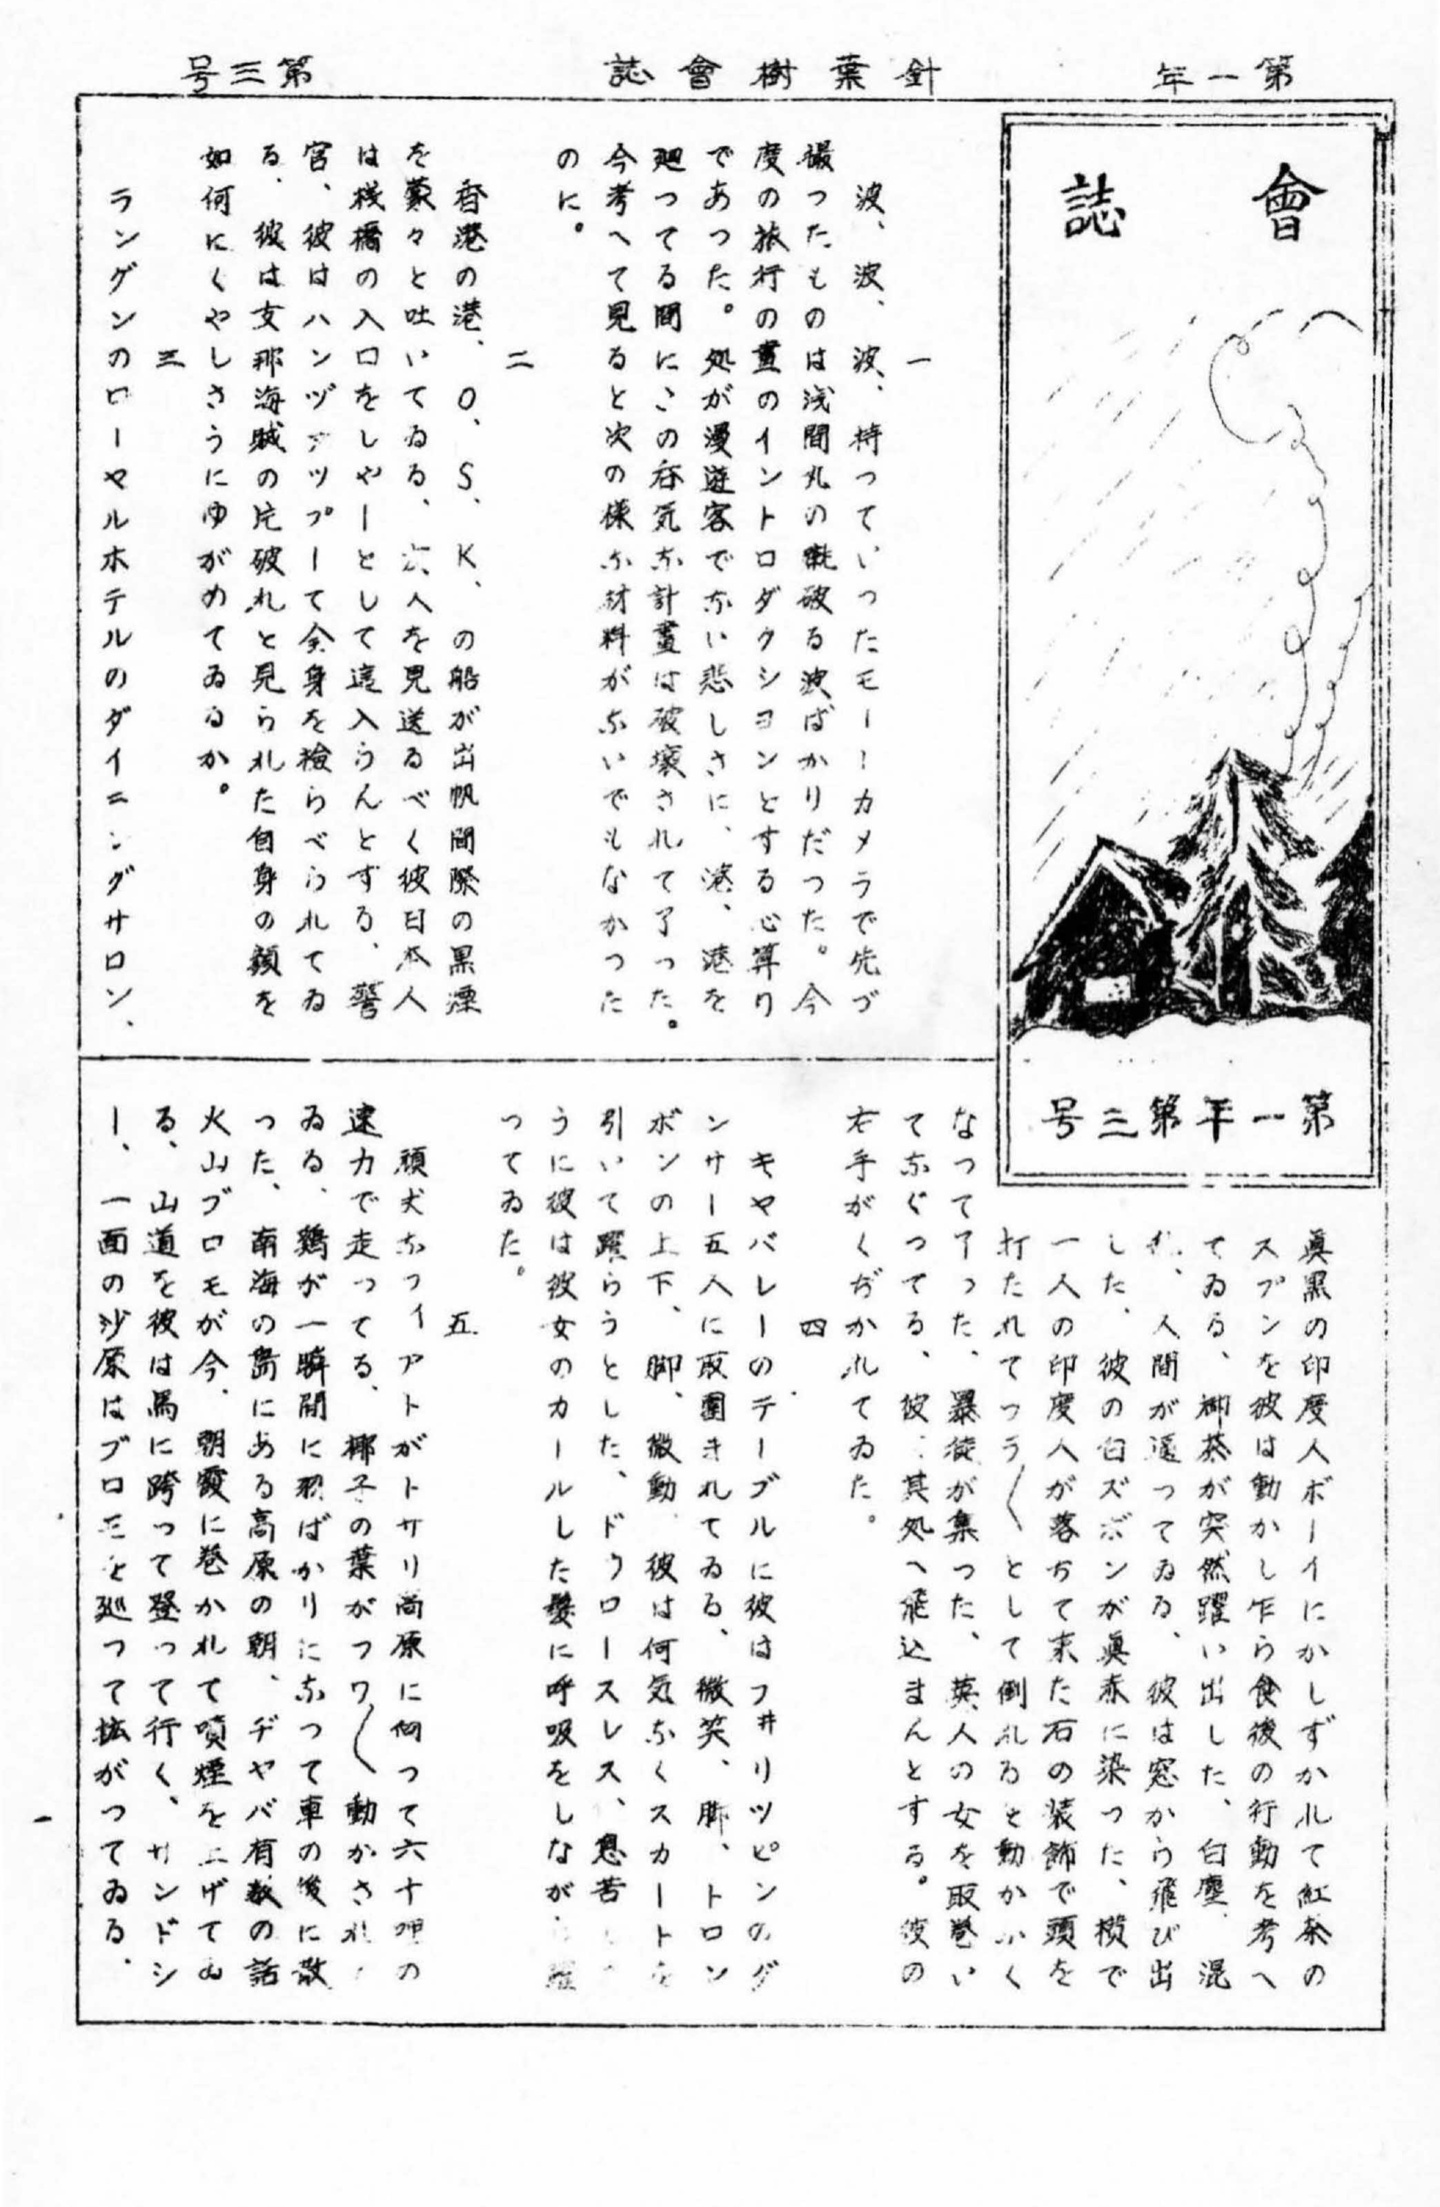 第一年
針葉樹會誌
第三号
會誌
第一年第三号
一
波、波、波、持つていつたモーーカメラで先づ
撮つたものは浅間丸の戳破る波ばかりだつた。今
度の旅行の畫のイントロダクシヨンとする心算り
であつた。処が漫遊客でない悲しさに、港、港を
廻つてる間にこの呑気な計畫は破壊されて了つた。
今考へて見ると次の様な材料がないでもなかつた
のに。
二
香港の港、O、S、K、の船が出帆間際の黒煙
を蒙々と吐いてゐる、人を見送るべく彼日本人
は棧橋の入口をしやーとして這入らんとする、警
官、彼はハンヅアツプーて全身を検らべられてゐ
る、彼は支那海賊の片破れと見られた自身の顔を
如何にくやしさうにゆがめてゐるか。
三
ラングンのローヤルホテルのダイニングサロン、
眞黒の印度人ボーイにかしずかれて紅茶の
スプンを彼は動かし乍ら食後の行動を考へ
てゐる、御茶が突然躍い出した、白塵、混
乱、人間が逼つてゐる、彼は窓から飛び出
した、彼の白ズボンが眞赤に染つた、横で
一人の印度人が落ちて来た石の装飾で頭を
打たれてつラ〱として倒れると動かなく
なつて了つた、暴徒が集つた、英人の女を取巻い
てなぐつてる、彼、其処へ飛込まんとする。彼の
右手がくぢかれてゐた。
四
キヤバレーのテーブルに彼はフヰリツピンのダ
ンサー五人に取圍まれてゐる、微笑、脚、トロン
ボンの上下、脚、微動、彼は何気なくスカートを
引いて躍らうとした、ドウロースレス、息苦し
うに彼は彼女のカールした髪に呼吸をしながら躍
つてゐた。
五
頑丈なフイアトがトサリ高原に向つて六十哩の
速力で走つてる、椰子の葉がフワ〱動かされ
ゐる、鶏が一瞬間に羽ばかりになつて車の後に散
つた、南海の島にある高原の朝、ヂヤバ有数の活
火山ブロモが今、朝霞に巻かれて噴煙を上げてゐ
る、山道を彼は馬に跨つて登つて行く、サンドシ
ー、一面の沙原はブロモを廻つて拡がつてゐる、